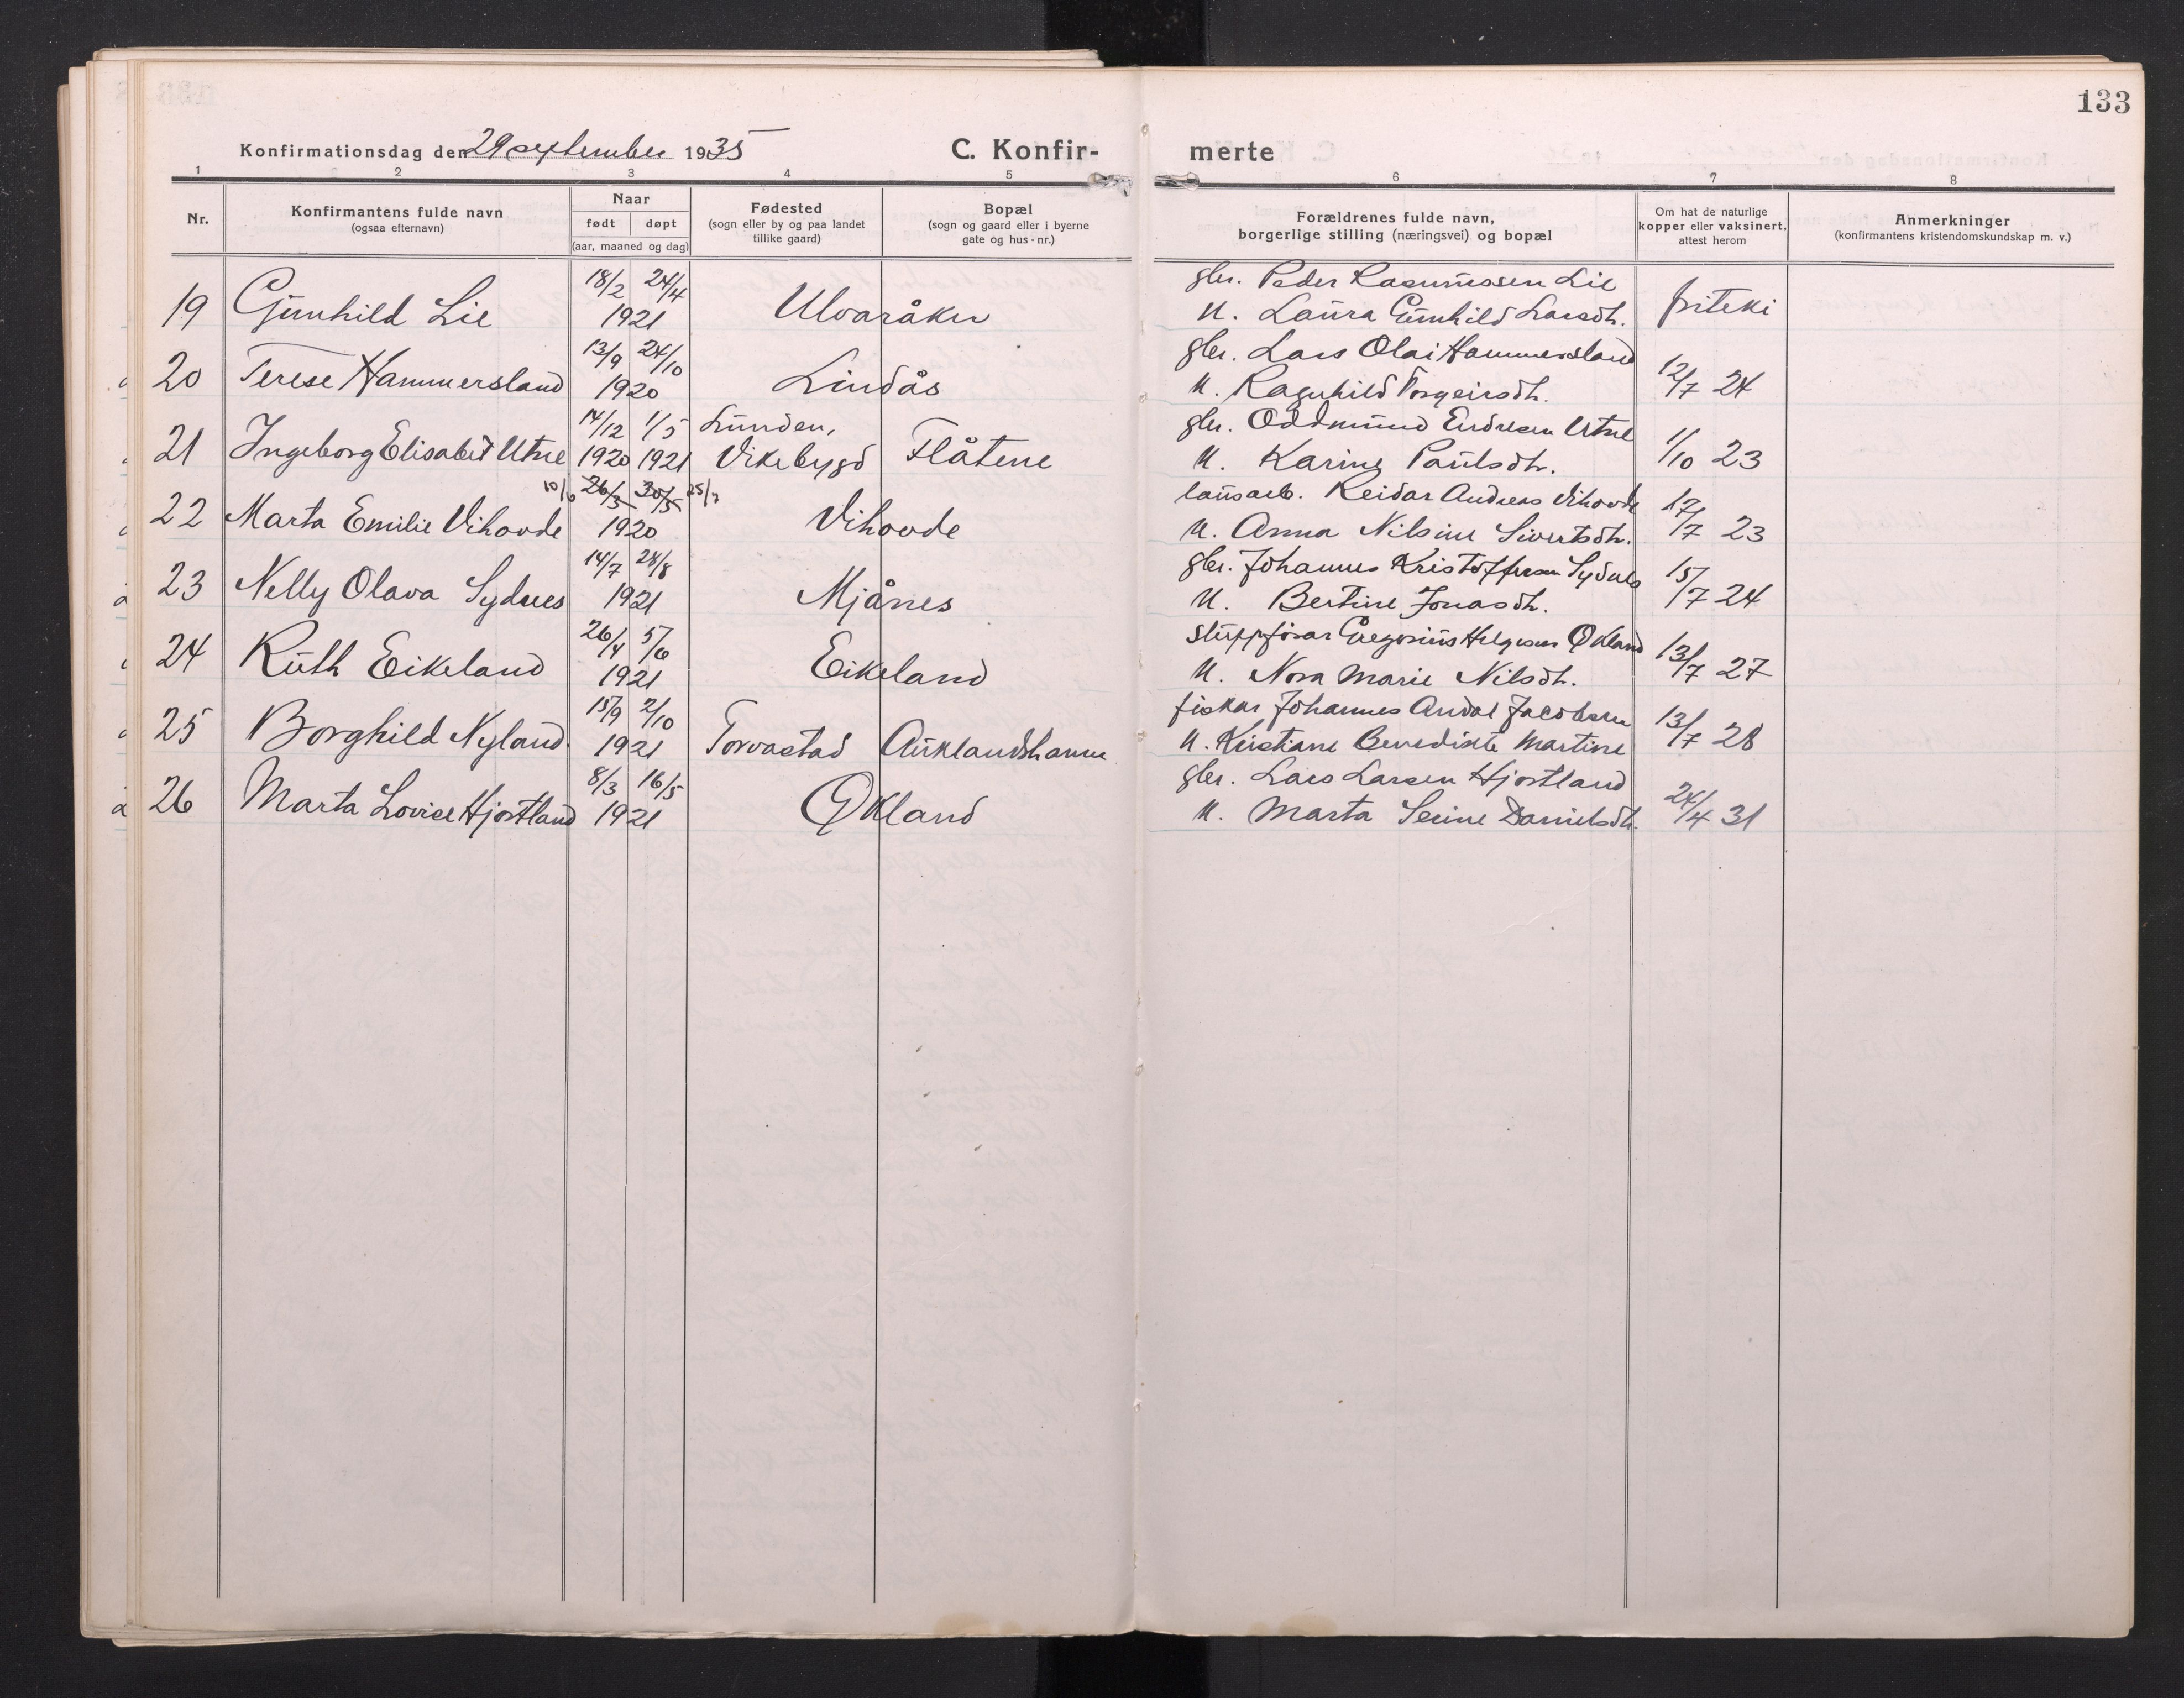 133
Konfirmationsdag den 29 september 1935
C. Konfir-
merte
1 2 3 4 5 6 7 8
Nr.
Konfirmantens fulde navn
(ogsaa efternavn)
Naar
født døpt
(aar, maaned og dag)
Fødested
(sogn eller by og paa landet
tillike gaard)
Bopæl
(sogn og gaard eller i byerne
gate og hus-nr.)
Forældrenes fulde navn,
borgerlige stilling (næringsvei) og bopæl
Om hat de naturlige
kopper eller vaksinert,
attest herom
Anmerkninger
(konfirmantens kristendomskundskap m. v.)
18/2 24/4 gbr. Peder Rasmussen Lie
19 Gunhild Lie 1921 Ulvaråker u. Laura Gunhild Larsdtr. friteki
13/9 24/10 gbr. Lars Olai Hammersland
20 Terese Hammersland 1920 Lindås u. Ragnhild Torgeirsdtr. 12/7 24
14/12 1/5 Lunden, gbr. Oddmund Endresen Utne
21 Ingeborg Elisabet Utne 1920 1921 Vikebygd Flåtene u. Karine Paulsdtr. 1/10 23
10/6 26/3 30/5 25/7 lausarb. Reidar Andreas Vihovde
22 Marta Emilie Vihovde 1920 Vihovde u. Anna Nilsine Sivertsdtr. 17/7 23
14/7 28/8 gbr. Johannes Kristoffersen Sydnes
23 Nelly Olava Sydnes 1921 Mjånes u. Bertine Jonasdtr. 15/7 24
26/4 5/6 Gregorius Helgesen Økland
24 Ruth Eikeland 1921 Eikeland u. Nora Marie Nilsdtr. 13/7 27
15/9 2/10 fiskar Johannes Andal Jacobsen
25 Borghild Nyland 1921 Torvastad Auklandshamn u. Kristiane Benedikte Martine 13/7 28
8/3 16/5 gbr. Lars Larsen Hjortland
26 Marta Lovise Hjortland 1921 Økland u. Marta Serine Danielsdtr. 24/4 31